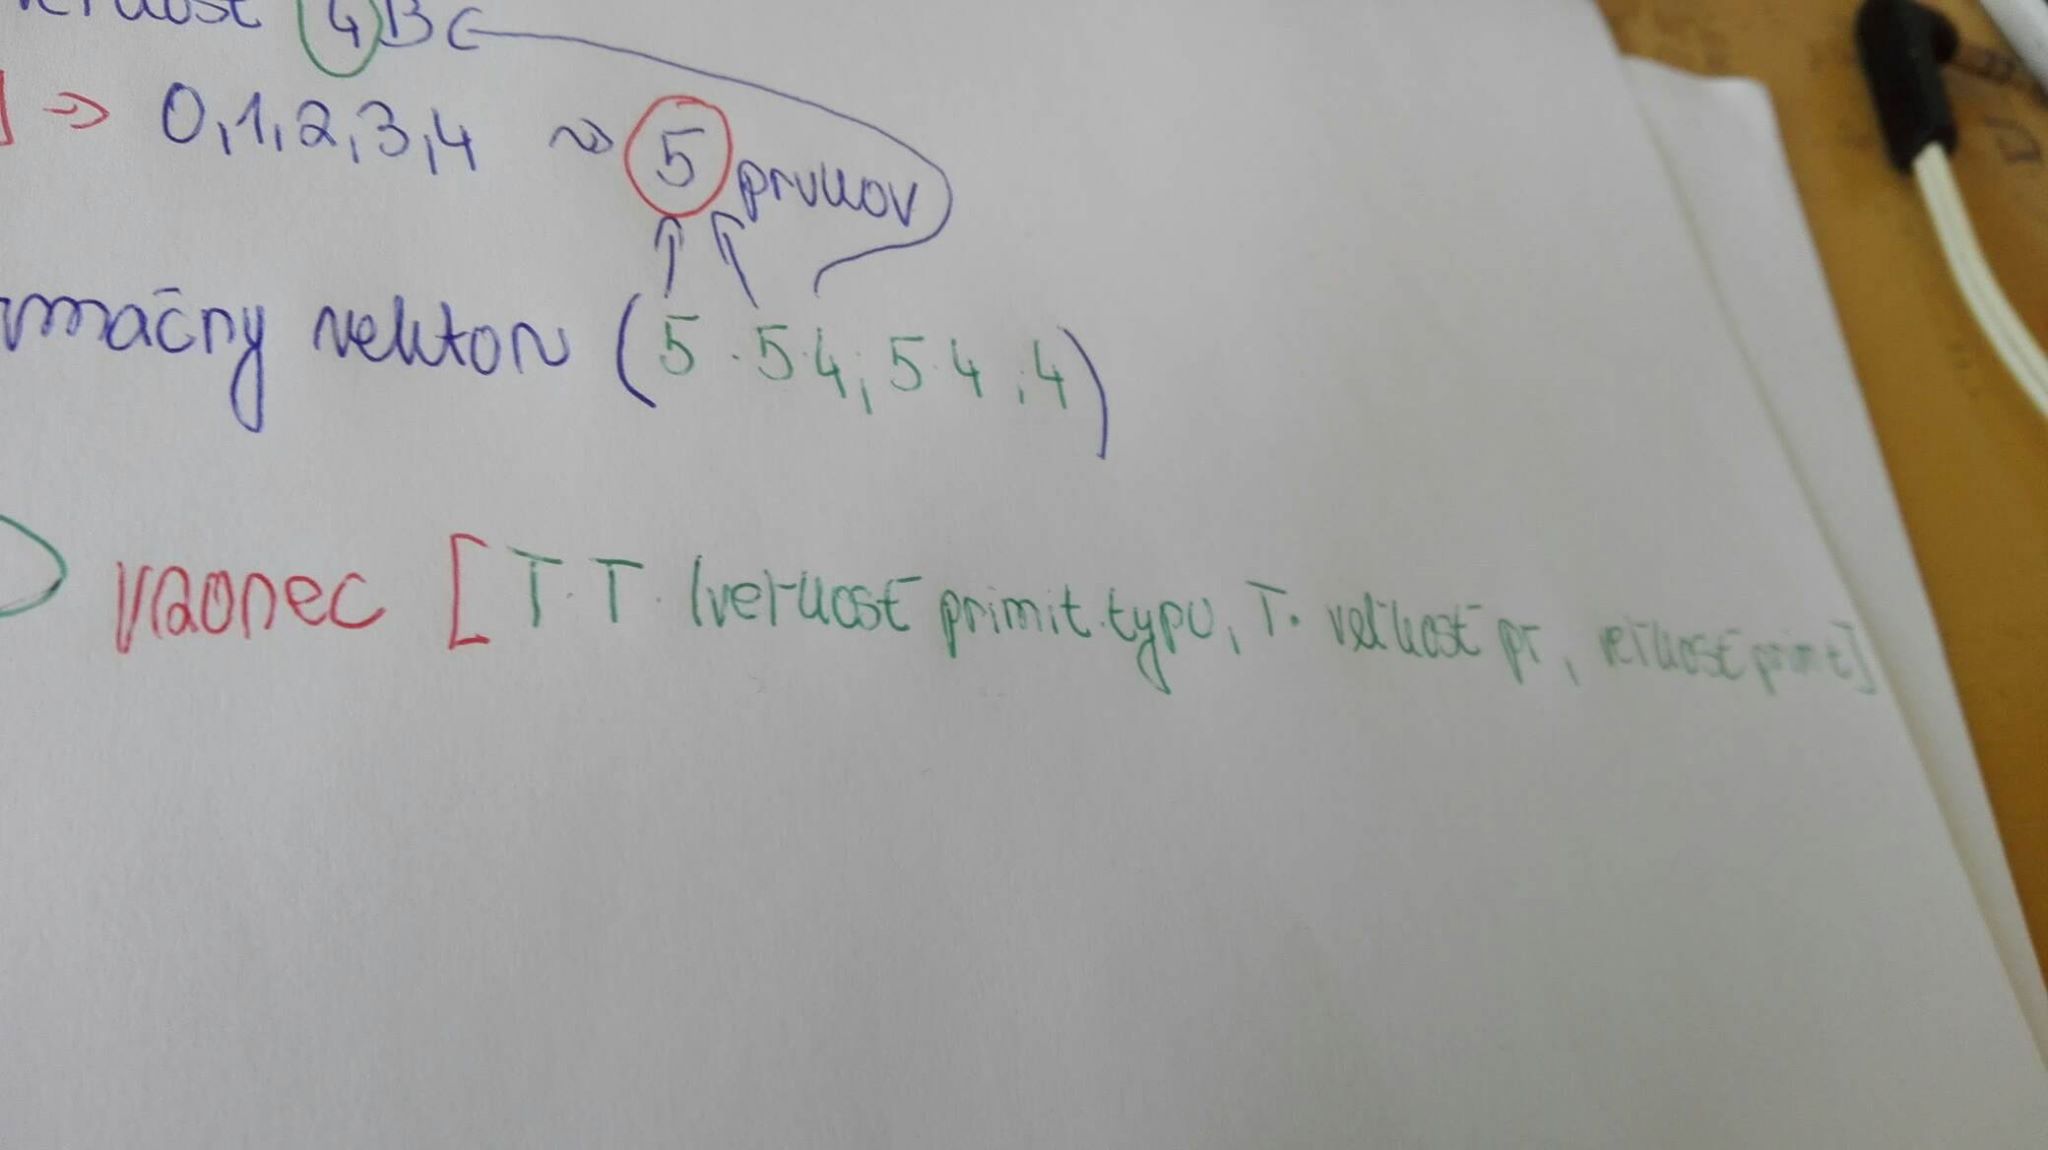 veľkosť 4B
] => 0,1,2,3,4 ~> 5 prvkov
mačný vektor (5·5·4, 5·4, 4)
vzorec [T·T·(veľkosť primit.typu, T· veľkosť pr, veľkosť primit]